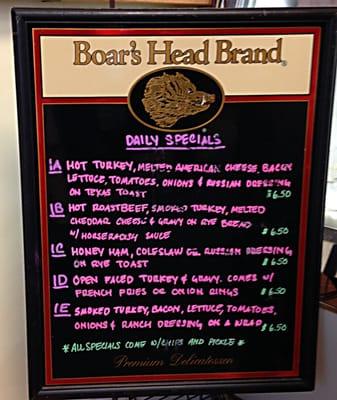 Boar's Head Brand®
DAILY SPECIALS
1A HOT TURKEY, MELTED AMERICAN CHEESE, BACON
LETTUCE, TOMATOES, ONIONS & RUSSIAN DRESSING
ON TEXAS TOAST $6.50
1B HOT ROASTBEEF, SMOKED TURKEY, MELTED
CHEDDAR CHEESE & GRAVY ON RYE BREAD
W/ HORSERADISH SAUCE $6.50
1C HONEY HAM, COLESLAW OR RUSSIAN DRESSING
ON RYE TOAST $6.50
1D OPEN FACED TURKEY & GRAVY. COMES W/
FRENCH FRIES OR ONION RINGS $6.50
1E SMOKED TURKEY, BACON, LETTUCE, TOMATOES,
ONIONS & RANCH DRESSING ON A WRAP $6.50
* ALL SPECIALS COME W/CHIPS AND PICKLE *
Premium Delicatessen